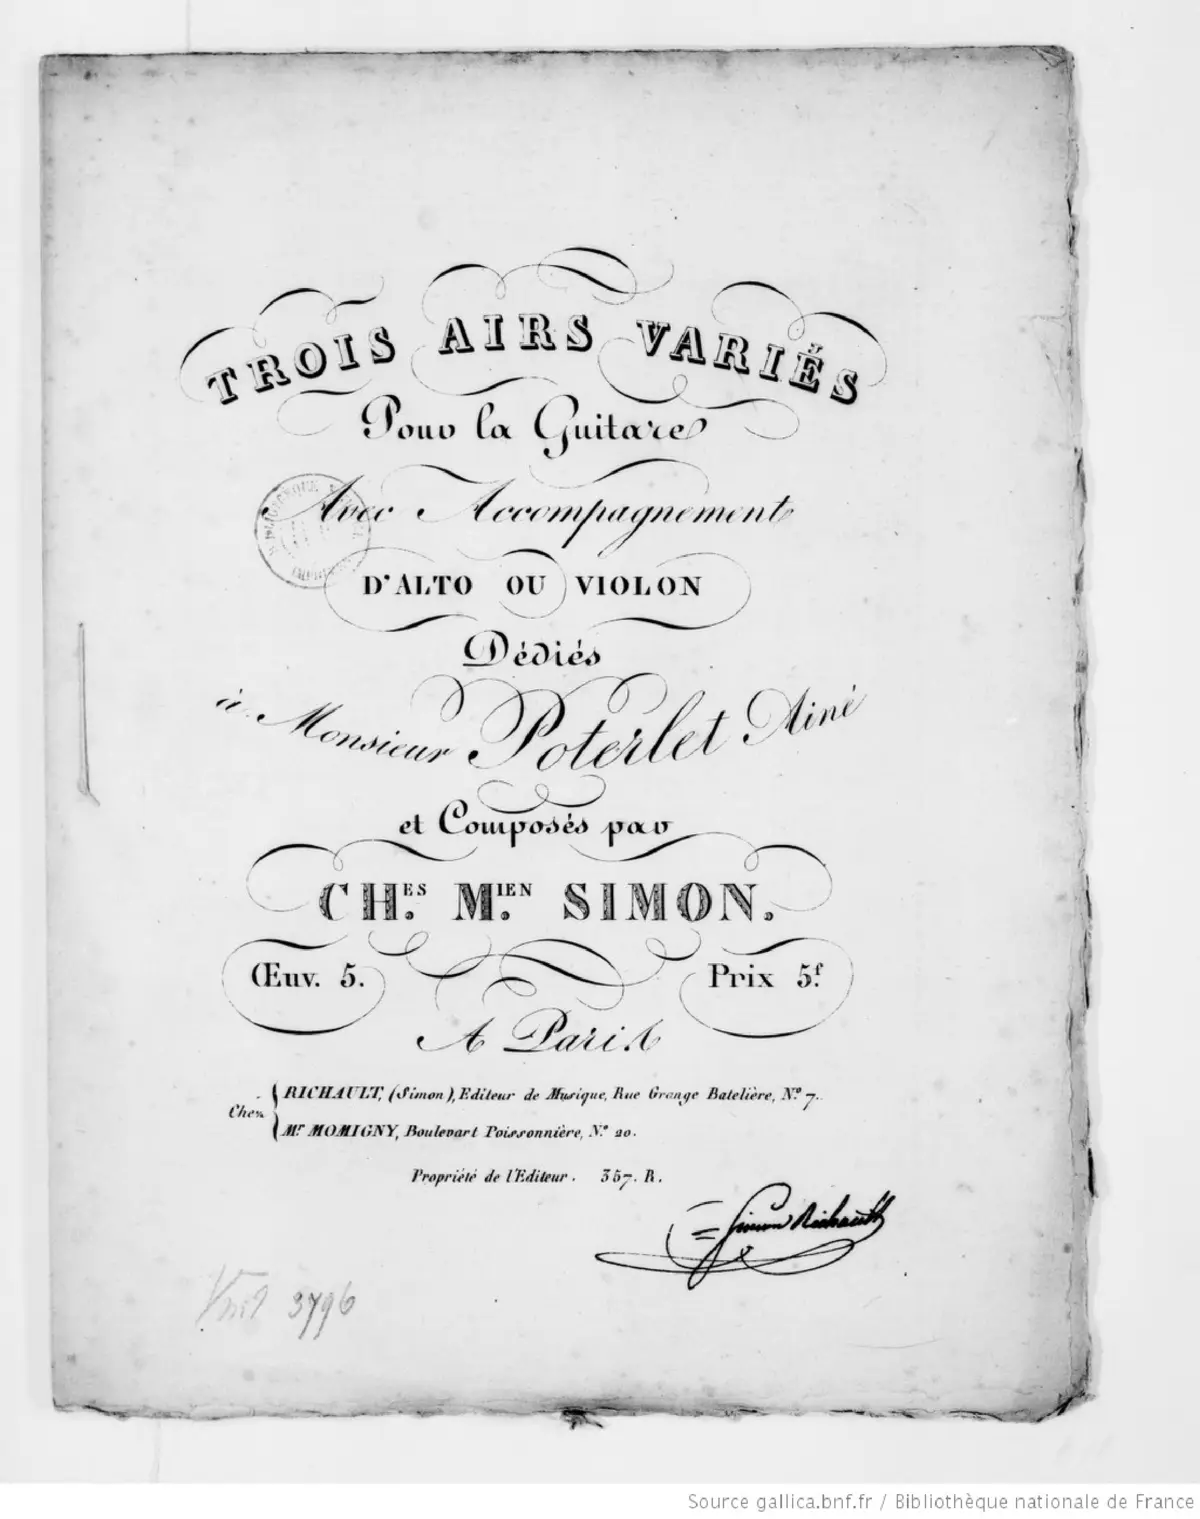 TROIS AIRS VARIÉS
Pour la Guitare
Avec Accompagnement
D'ALTO OU VIOLON
Dédiés
à Monsieur Poterlet Ainé
et Composés par
CH.ES M.IEN SIMON.
Œuv. 5. Prix 5.f
A Paris
Chez
RICHAULT, (Simon), Editeur de Musique, Rue Grange Batelière, N.o 7.
M.r MOMIGNY, Boulevart Poissonnière, N.o 20.
Propriété de l'Editeur. 357. R.
Simon Richault
3796
Source gallica.bnf.fr / Bibliothèque nationale de France